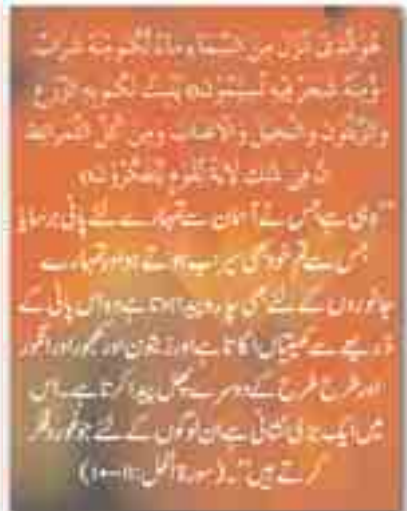 هُوَ الَّذِیْ نَزَّلَ مِنَ السَّمَاءِ مَاءً لَّکُمْ مِّنْهُ شَرَابٌ
وَّمِنْهُ شَجَرٌ فِیْهِ تُسِیْمُوْنَo یُنْبِتُ لَکُمْ بِهِ الزَّرْعَ
وَالزَّیْتُوْنَ وَالنَّخِیْلَ وَالْاَعْنَابَ وَمِنْ کُلِّ الثَّمَرَاتِ
اِنَّ فِیْ ذٰلِکَ لَاٰیَةً لِّقَوْمٍ یَّتَفَکَّرُوْنَo
”وہی ہے جس نے آسمان سے تمہارے لئے پانی برسایا
جس سے تم خود بھی سیراب ہوتے ہو اور تمہارے
جانوروں کے لئے بھی چارہ پیدا ہوتا ہے وہ اس پانی کے
ذریعے سے کھیتیاں اگاتا ہے اور زیتون اور کھجور اور انگور
اور طرح طرح کے دوسرے پھل پیدا کرتا ہے۔ اس
میں ایک بڑی نشانی ہے ان لوگوں کے لئے جو غور و فکر
کرتے ہیں“۔ (سورۃ النحل:۱۱-۱۰)